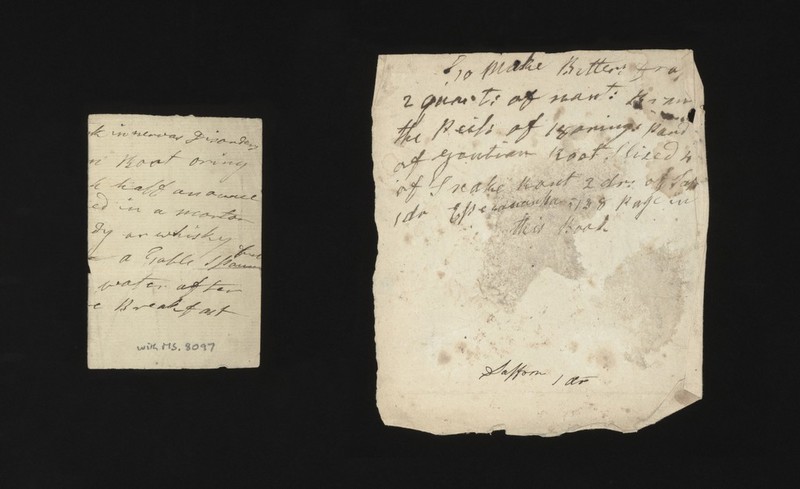 k in nervas Disorders
n Root oring
k half an ounce
ed in a mortar
dy or whisky
a Table Spoon
full
water after
e Breakfast
with MS. 8097
To Make Bitters
2 quarts of
the Peils of 12 orings
of gentian Root Sliced
of Snake Root 2 drs of
1 dr 138 Page in
this Book
Saffron 1 dr